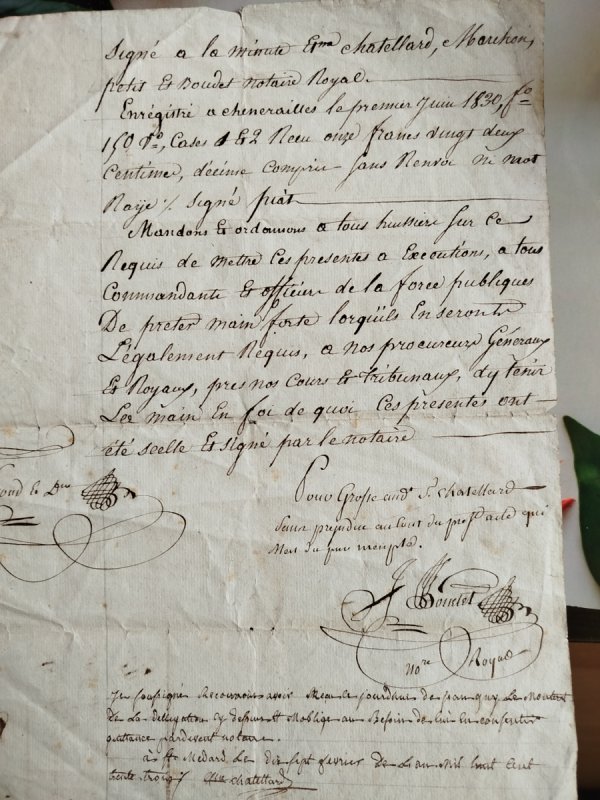 Signé a la minute Chatellard, Marchon,
petit Et Boudet Notaire Royal.
Enrégistré a chenerailles le premier Juin 1830, fo
150 Vo, Cases 1 & 2 Recu onze francs vingt deux
Centime, décime Compris Sans Renvoi ni mot
Rayé ./. Signé piát
Mandons Et ordonnons a tous huissiers Sur Ce
Requis de Mettre Ces presentes a Exécutions, a tous
Commandants Et officiers de la force publiques
De preter main forte lorqüils En seronts
Légalement Requis, a nos procureurs Généraux
Et Royaux, pres nos Cours Et tribunaux, dy tenir
La main En foi de quoi Ces présentes ont
été scelle Et Signé par le notaire
Pour Grosse aud. Chatellard
Sans prejudice au Cout du acte qui
Boudet
No.re Royal
Je Soussigné Reconnais avoir le Montant
De La au Besoin de lui En Consentir
quittance pardevant notaire.
à St. Medard Le dix Sept fevrier De Lan Mil huit Cent
trente trois Chatellard